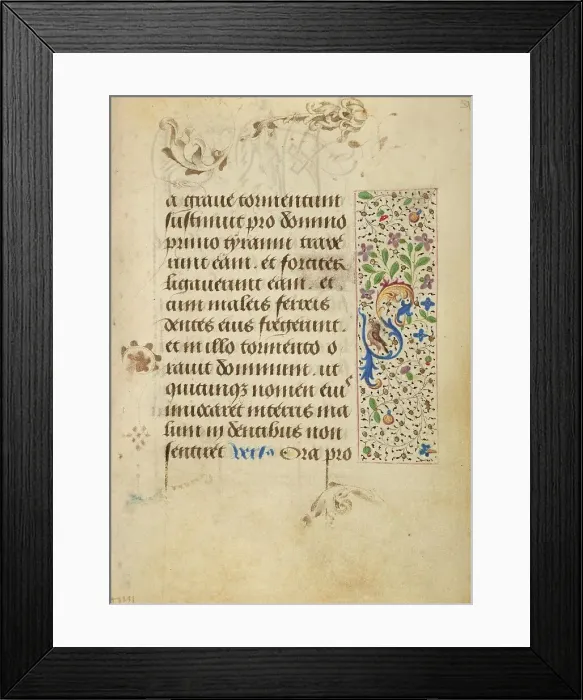 a graue tormentum
sustinuit pro domino
primo tyranni traxe
runt eam. et fortiter
ligauerunt eam. et
cum maleis ferreis
dentes eius fregerunt.
et in illo tormento o
rauit dominum. ut
quicunqꝫ nomen eius
inuocaret in terris ma
lum in dentibus non
sentiret Ora pro